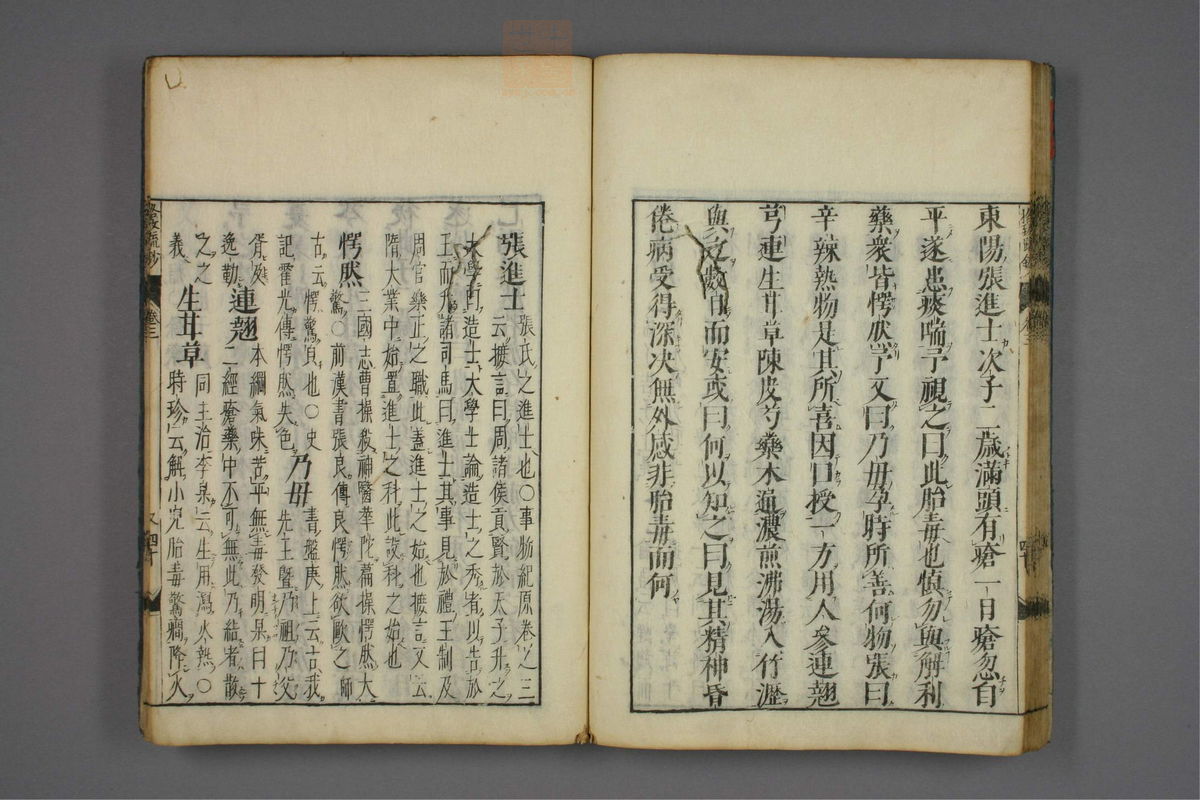 東陽張進士次子二歳滿頭有瘡一日瘡忽自
平遂患痰喘予視之曰此胎毒也愼勿與解利
藥衆皆愕然予又曰乃母孕時所善何物張曰
辛辣熱物是其所喜因口授一方用人參連翹
芎連生甘草陳皮芍藥木通濃煎沸湯入竹瀝
與之數日而安或曰何以知之曰見其精神昏
倦病受得深决無外感非胎毒而何
張進士 張氏之進士也○事物紀原卷之三
云摭言曰周諸侯貢賢於天子升之
大學曰造士大學士論造士之秀者以告於
王而升諸司馬曰進士其事見於禮王制及
周官樂正之職此蓋進士之始也摭言又云
隋大業中始置進士之科此設科之始也
愕然 三國志曹操殺神醫華陀篇操愕然大
驚○前漢書張良傳良愕然欲歐之師
古云愕驚貌也○史
記霍光傳愕然失色 乃母 書盤庚上云古我
先王曁乃祖乃父
胥逸勤 連翹 本綱氣味苦平無毒發明杲曰十
二經瘡藥中不可無此乃結者散
之之
義 生甘草 同主治李杲云生用瀉火熱○
時珍云解小兒胎毒驚癇降火
卷三
四十